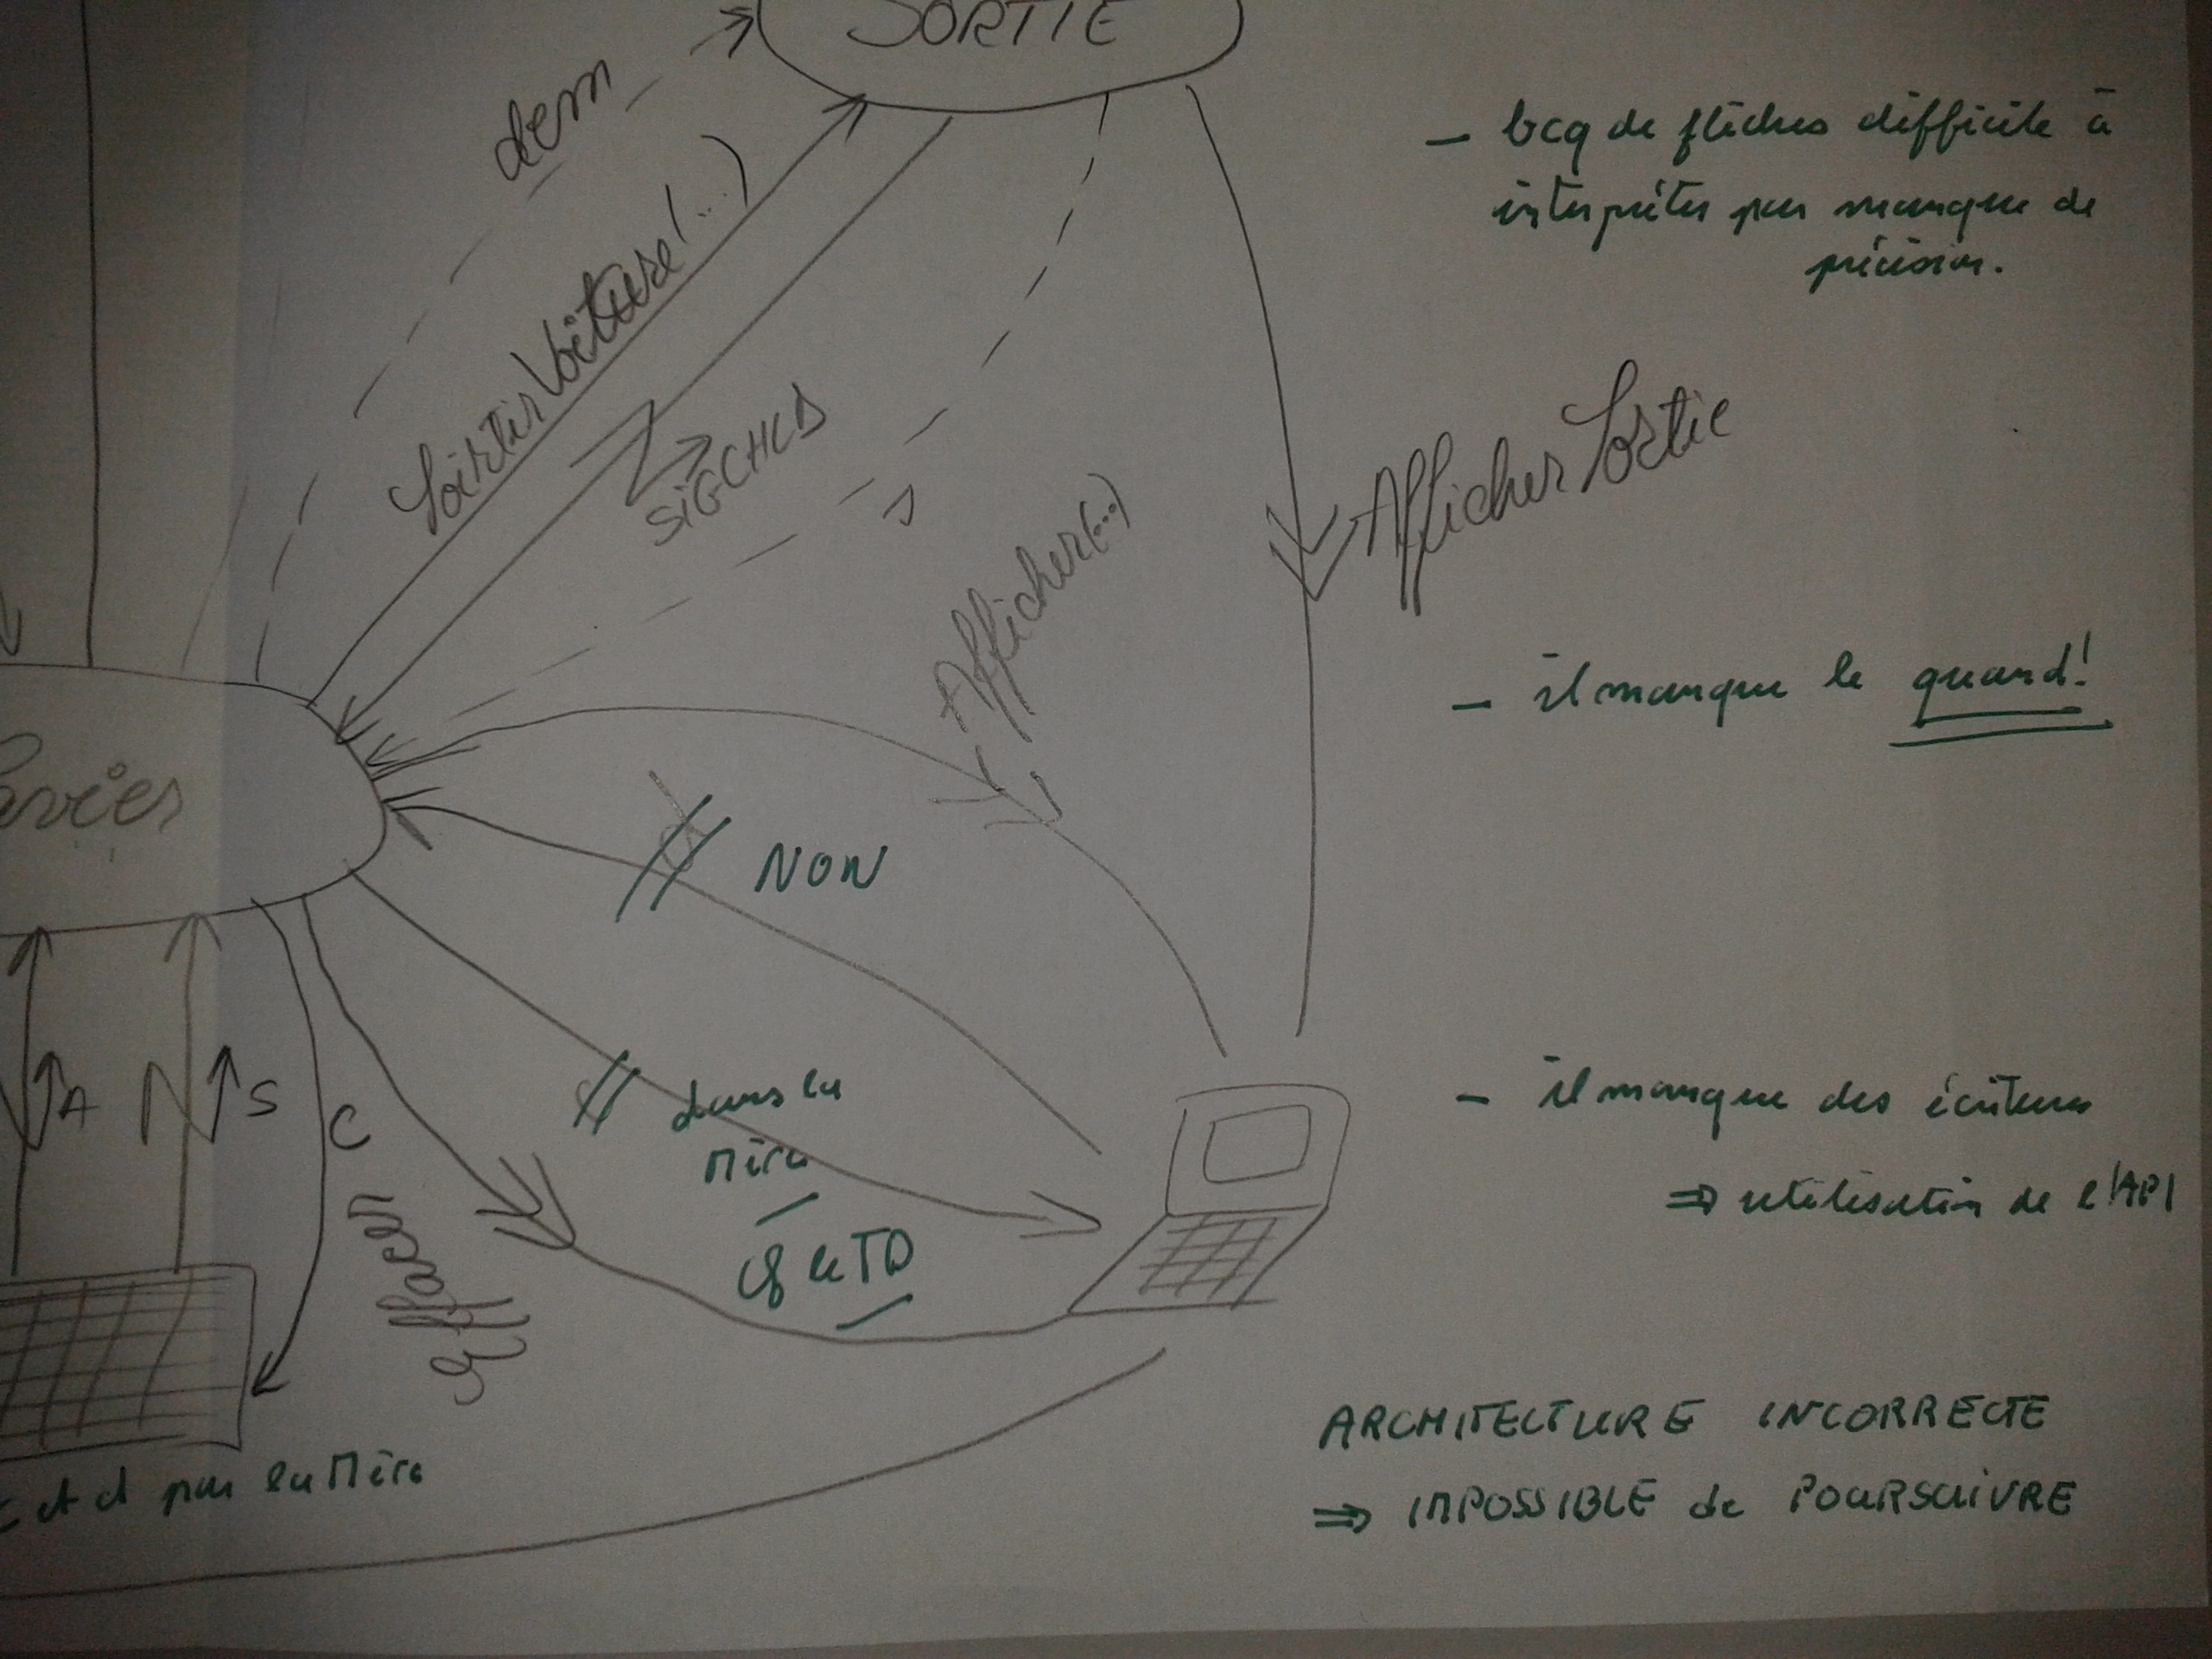 SORTIE
dem
SortirVoiture(...)
SIGCHLD
s
Afficher(...)
AfficherSortie
NON
dans la
Mère
cf le TD
A
S
C
Effacer
et d par la Mère
- bcq de flèches difficile à
interpréter par manque de
précision.
- il manque le quand!
- il manque des écritures
⇒ utilisation de l'API
ARCHITECTURE INCORRECTE
⇒ IMPOSSIBLE de POURSUIVRE